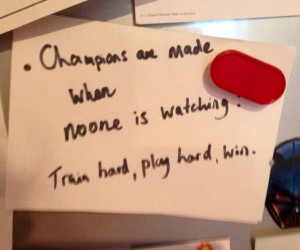 • Champions are made
when
noone is watching!
Train hard, play hard, win.